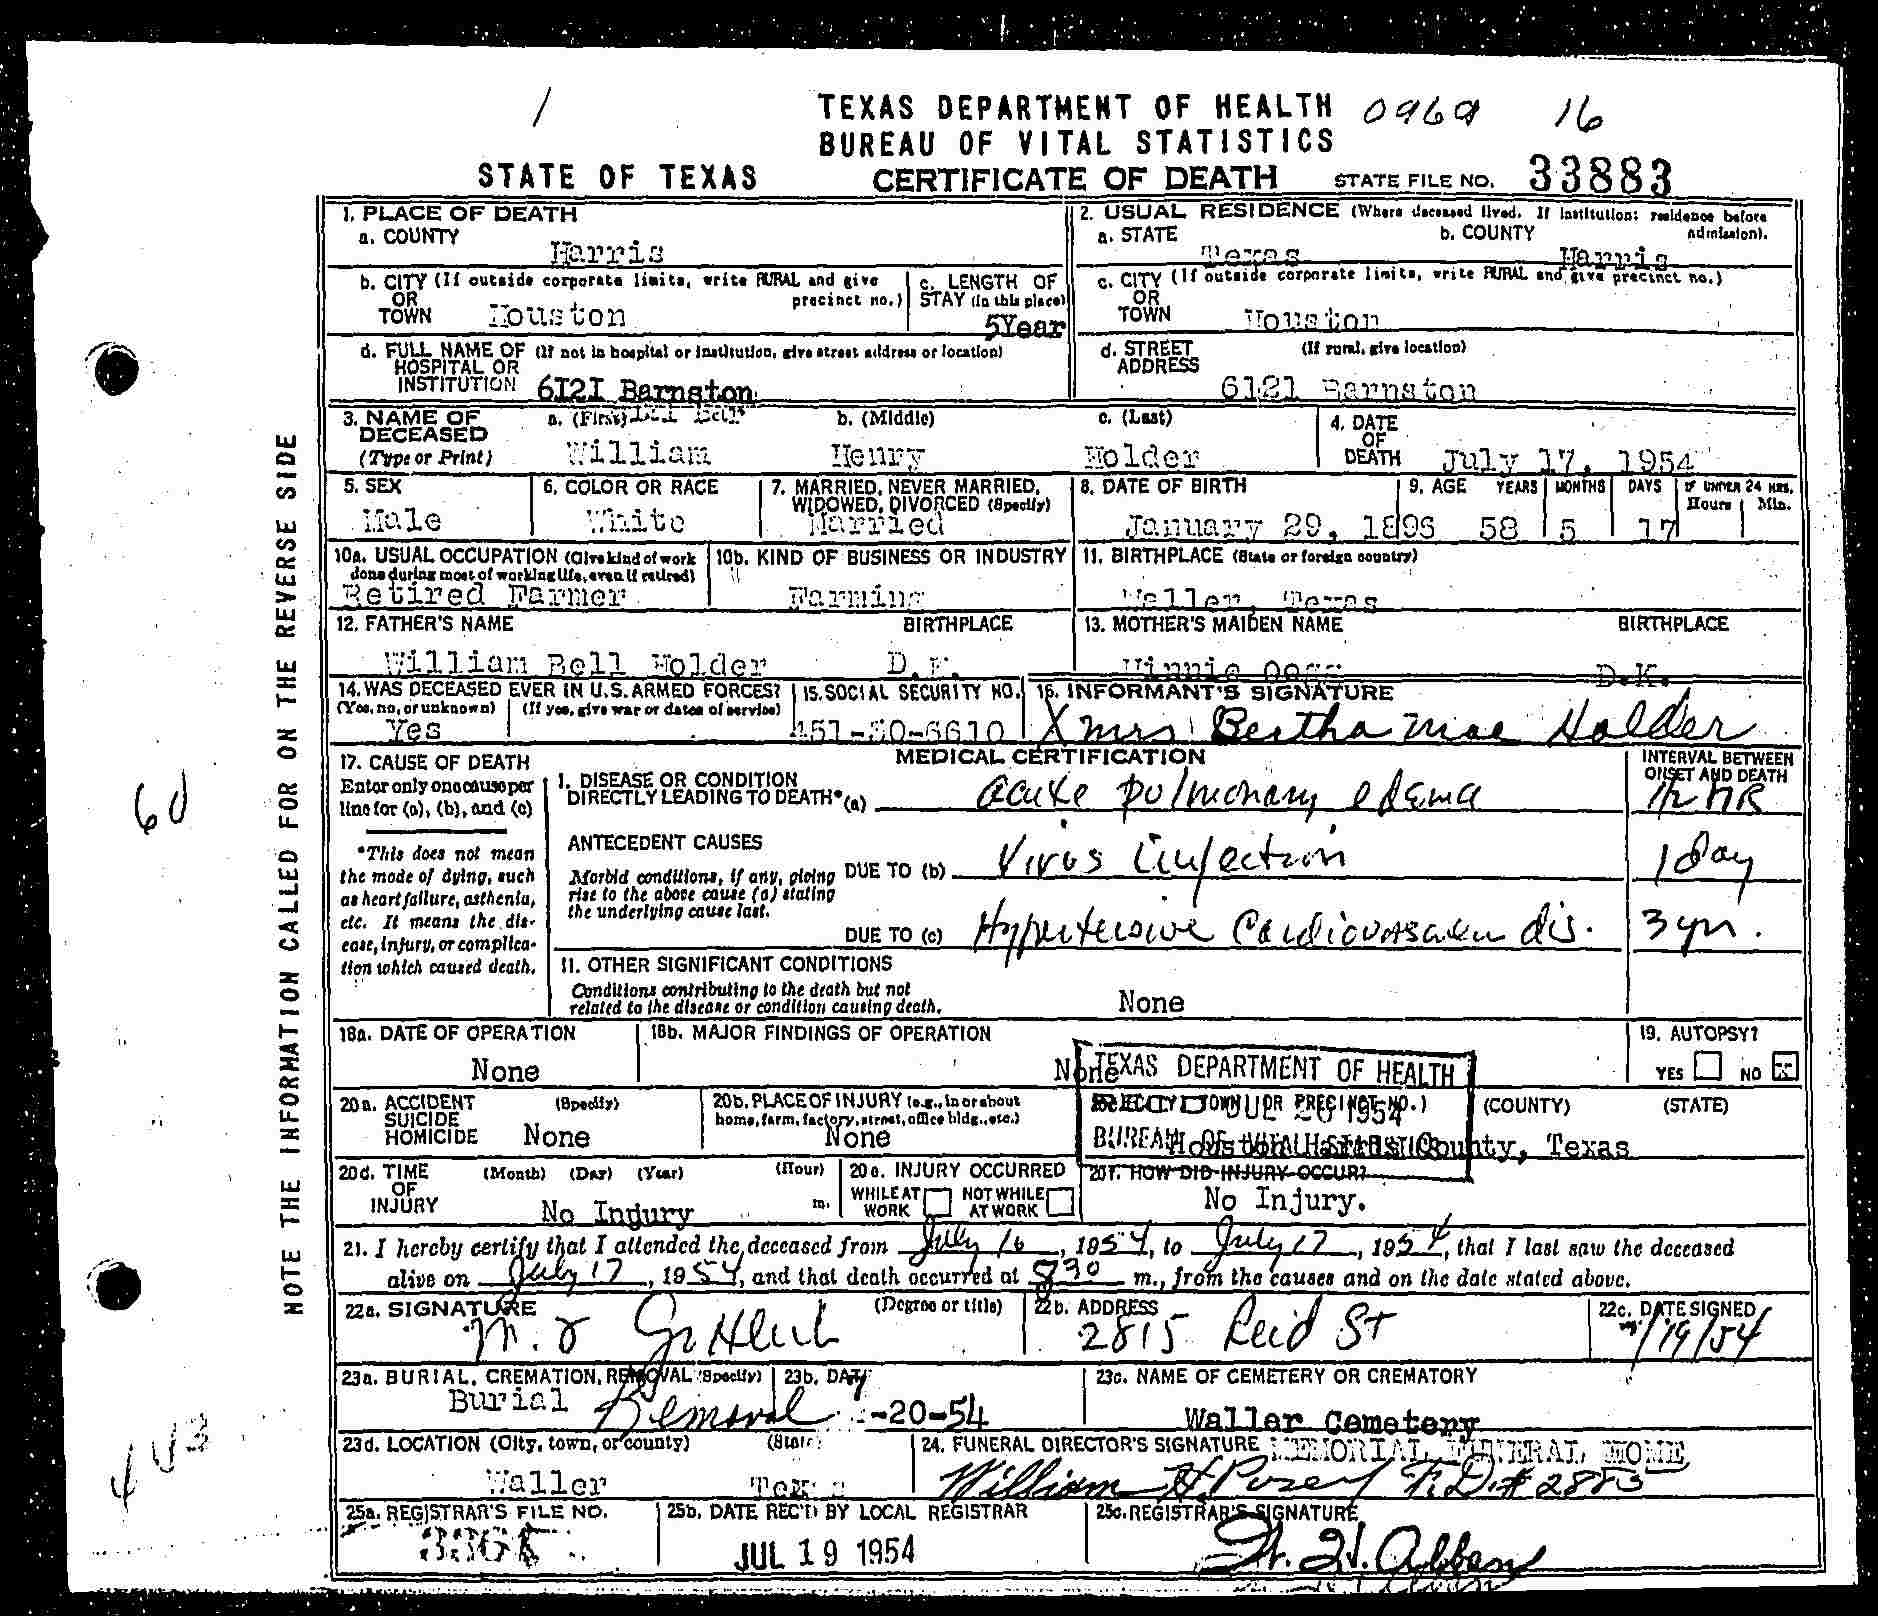 1
TEXAS DEPARTMENT OF HEALTH 0969 16
BUREAU OF VITAL STATISTICS
STATE OF TEXAS CERTIFICATE OF DEATH STATE FILE NO. 33883
NOTE THE INFORMATION CALLED FOR ON THE REVERSE SIDE
1. PLACE OF DEATH
a. COUNTY
Harris
2. USUAL RESIDENCE (Where deceased lived. If institution: residence before admission).
a. STATE b. COUNTY
Texas Harris
b. CITY (If outside corporate limits, write RURAL and give precinct no.)
OR
TOWN Houston
c. LENGTH OF
STAY (in this place)
5Year
c. CITY (If outside corporate limits, write RURAL and give precinct no.)
OR
TOWN Houston
d. FULL NAME OF (If not in hospital or institution, give street address or location)
HOSPITAL OR
INSTITUTION 6I2I Barnston
d. STREET (If rural, give location)
ADDRESS
6121 Barnston
3. NAME OF a. (First) b. (Middle) c. (Last)
DECEASED
(Type or Print) William Henry Holder
4. DATE
OF
DEATH July 17, 1954
5. SEX
Male
6. COLOR OR RACE
White
7. MARRIED, NEVER MARRIED,
WIDOWED, DIVORCED (Specify)
Married
8. DATE OF BIRTH
January 29, 1896
9. AGE YEARS MONTHS DAYS IF UNDER 24 HRS.
Hours Min.
58 5 17
10a. USUAL OCCUPATION (Give kind of work
done during most of working life, even if retired)
Retired Farmer
10b. KIND OF BUSINESS OR INDUSTRY
Farming
11. BIRTHPLACE (State or foreign country)
Waller, Texas
12. FATHER'S NAME BIRTHPLACE
William Bell Holder D.K.
13. MOTHER'S MAIDEN NAME BIRTHPLACE
D.K.
14. WAS DECEASED EVER IN U.S. ARMED FORCES?
(Yes, no, or unknown) (If yes, give war or dates of service)
Yes
15. SOCIAL SECURITY NO.
16. INFORMANT'S SIGNATURE
X Mrs Bertha Mae Holder
MEDICAL CERTIFICATION
17. CAUSE OF DEATH
Enter only one cause per
line for (a), (b), and (c)
*This does not mean
the mode of dying, such
as heart failure, asthenia,
etc. It means the dis-
ease, injury, or complica-
tion which caused death.
I. DISEASE OR CONDITION
DIRECTLY LEADING TO DEATH*(a) acute pulmonary edema
INTERVAL BETWEEN
ONSET AND DEATH
ANTECEDENT CAUSES
Morbid conditions, if any, giving
rise to the above cause (a) stating
the underlying cause last.
DUE TO (b) Virus infection 1 day
DUE TO (c) Hypertensive Cardiovascular dis. 3 yrs.
II. OTHER SIGNIFICANT CONDITIONS
Conditions contributing to the death but not
related to the disease or condition causing death.
None
18a. DATE OF OPERATION
None
18b. MAJOR FINDINGS OF OPERATION
None
19. AUTOPSY?
YES NO X
TEXAS DEPARTMENT OF HEALTH
REC'D JUL 26 1954
BUREAU OF VITAL STATISTICS
20a. ACCIDENT (Specify)
SUICIDE
HOMICIDE None
20b. PLACE OF INJURY (e.g., in or about
home, farm, factory, street, office bldg., etc.)
None
20c. (CITY, TOWN, OR PRECINCT NO.) (COUNTY) (STATE)
Houston Harris County, Texas
20d. TIME (Month) (Day) (Year) (Hour)
OF
INJURY No Injury m.
20e. INJURY OCCURRED
WHILE AT WORK NOT WHILE AT WORK
20f. HOW DID INJURY OCCUR?
No Injury.
21. I hereby certify that I attended the deceased from July 16, 1954, to July 17, 1954, that I last saw the deceased
alive on July 17, 1954, and that death occurred at 830 m., from the causes and on the date stated above.
22a. SIGNATURE (Degree or title)
22b. ADDRESS
2815 Reid St
22c. DATE SIGNED
7/19/54
23a. BURIAL, CREMATION, REMOVAL (Specify)
Burial Removal
23b. DATE
7-20-54
23c. NAME OF CEMETERY OR CREMATORY
Waller Cemetery
23d. LOCATION (City, town, or county) (State)
Waller Texas
24. FUNERAL DIRECTOR'S SIGNATURE MEMORIAL FUNERAL HOME
William H. F.D.# 2883
25a. REGISTRAR'S FILE NO.
25b. DATE REC'D BY LOCAL REGISTRAR
JUL 19 1954
25c. REGISTRAR'S SIGNATURE